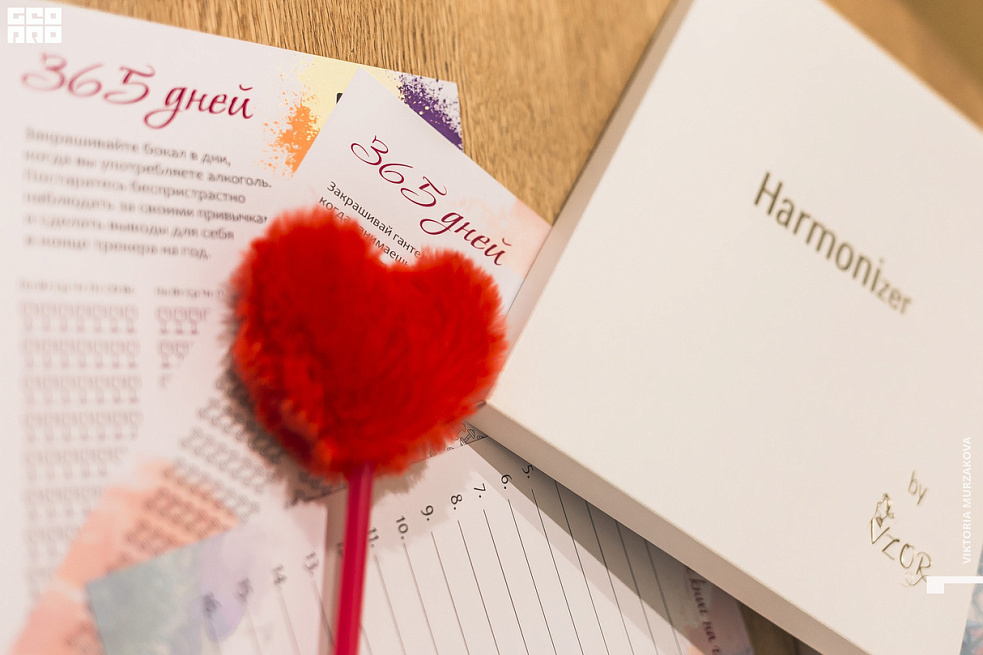 GEO
PRO
365 дней
Закрашивайте бокал в дни,
когда вы употребляете алкоголь.
Постарайтесь беспристрастно
наблюдать за своими привычка
и сделать выводы для себя
в конце трекера на год.
365 дней
Закрашивай ганте
когда
нимаеш
Harmonizer
by
VZOR
5.
6.
7.
8.
9.
10.
11.
12.
13.
14.
VIKTORIA MURZAKOVA